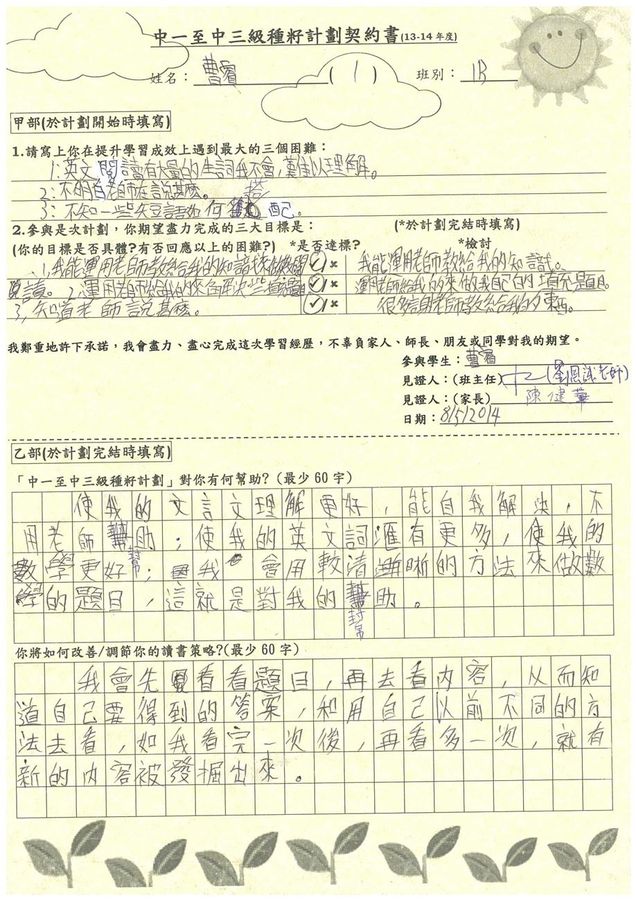 中一至中三級種籽計劃契約書(13-14年度)
姓名： 曹睿 ( 1 ) 班別： 1B
甲部(於計劃開始時填寫)
1.請寫上你在提升學習成效上遇到最大的三個困難：
1. 英文閱讀有大量的生詞我不會，難以理解。
2. 不明白老師在說甚麼。
3. 不知一些 如何 配己。
2.參與是次計劃，你期望盡力完成的三大目標是： (*於計劃完結時填寫)
(你的目標是否具體?有否回應以上的困難?) *是否達標? *檢討
1. 我能運用老師教給我的知識來做 ✓/× 我能運用老師教給我的知識。
閱讀。2. 運用老師給我的來解決些難題 ✓/× 運用老師給我的來做我自己的填充題目。
3. 知道老師說甚麼。 ✓/× 很多這用老師教給我的東西。
我鄭重地許下承諾，我會盡力、盡心完成這次學習經歷，不辜負家人、師長、朋友或同學對我的期望。
參與學生：曹睿
見證人：(班主任) 老師)
見證人：(家長) 陳健華
日期：8/5/2014
乙部(於計劃完結時填寫)
「中一至中三級種籽計劃」對你有何幫助?(最少 60 字)
使我的文言文理解更好，能自我解決，不
用老師幫助；使我的英文詞滙有更多，使我的
數學更好；我會用較清晰的方法來做數
學的題目，這就是對我的幫助。
你將如何改善/調節你的讀書策略?(最少 60 字)
我會先看看題目，再去看內容，以而知
道自己要得到的答案，和用自己以前不同的方
法去看，如我看完一次後，再看多一次，就有
新的內容被發掘出來。